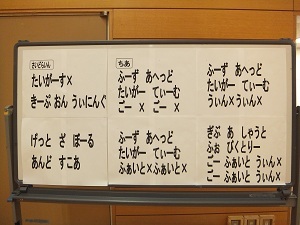 さいどらいん
たいがーす×
きーぷ おん うぃにんぐ
げっと ざ ぼーる
あんど すこあ
ちあ
ふーず あへっど
たいがー てぃーむ
ごー × ごー ×
ふーず あへっど
たいがー てぃーむ
ふぁいと×ふぁいと×
ふーず あへっど
たいがー てぃーむ
うぃん×うぃん×
ぎぶ あ しゃうと
ふぉ びくとりー
ごー ふぁいと うぃん×
ごー ふぁいと うぃん×